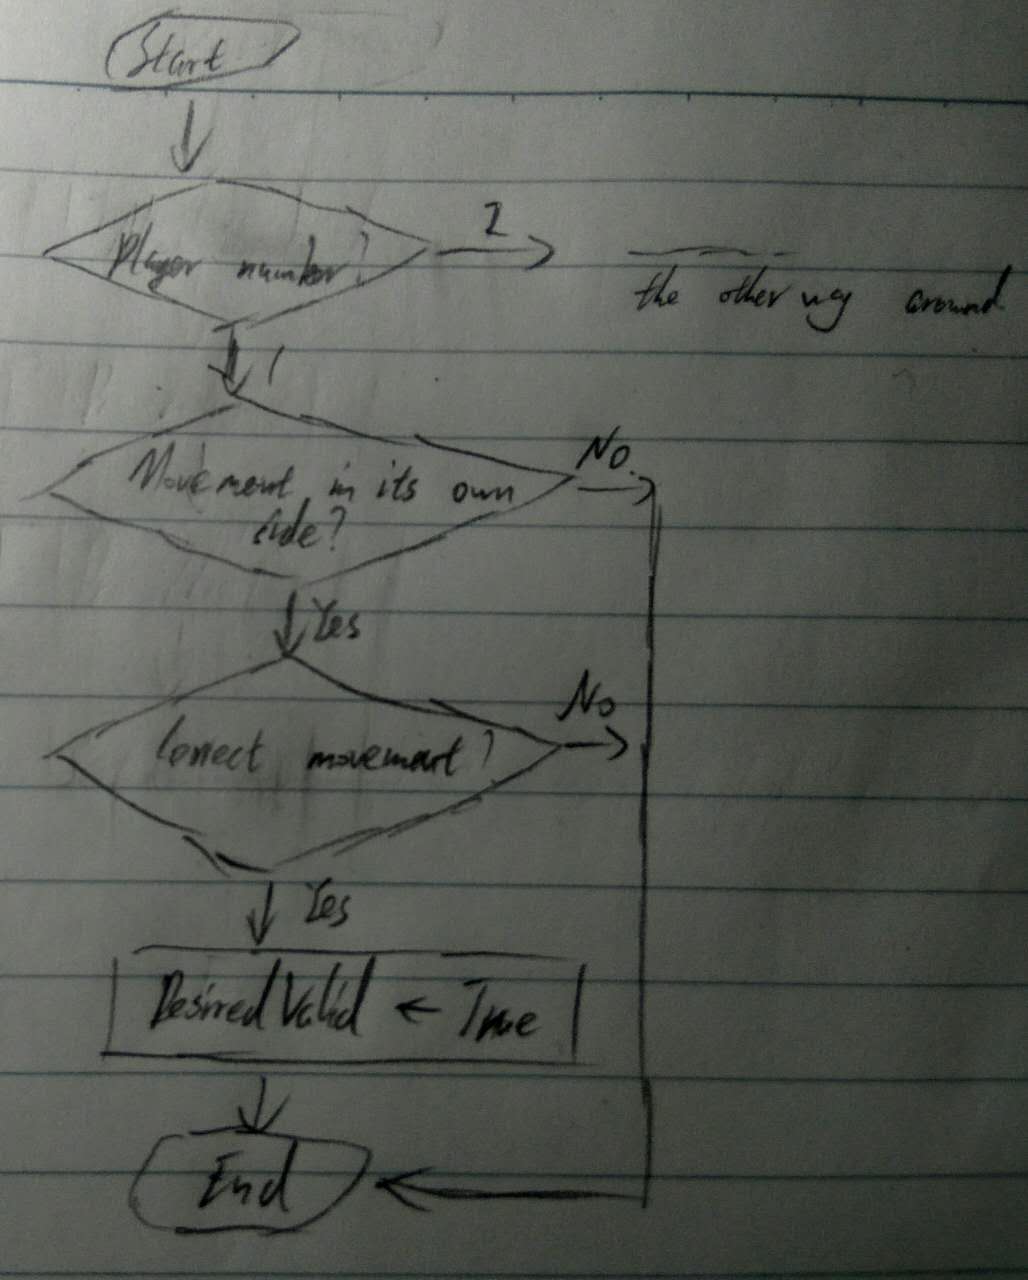 Start
Player number?
2
the other way around
1
Movement in its own
side?
No.
Yes
Correct movement?
No
Yes
DesiredValid ← True
End